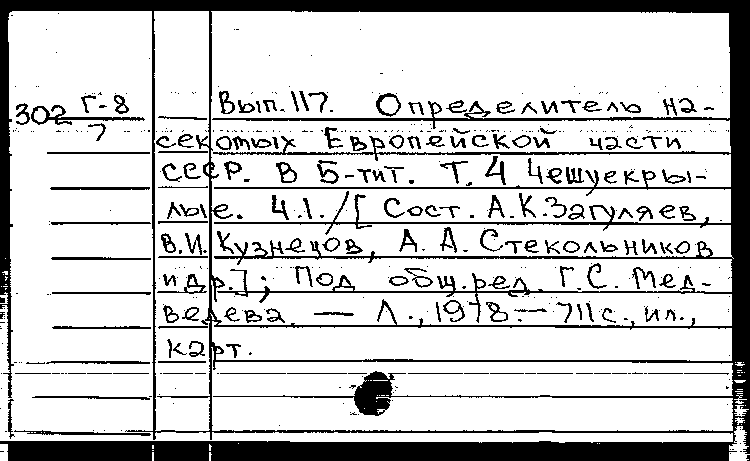 302 Г-8/7 Вып. 117. Определитель на-
секомых Европейской части
СССР. В 5-тит. Т. 4. Чешуекры-
лые. Ч.1. / [ Сост. А.К.Загуляев,
В.И. Кузнецов, А. А. Стекольников
и др.] ; Под общ.ред. Г.С. Мед-
ведева. — Л., 1978.— 711с., ил.,
карт.